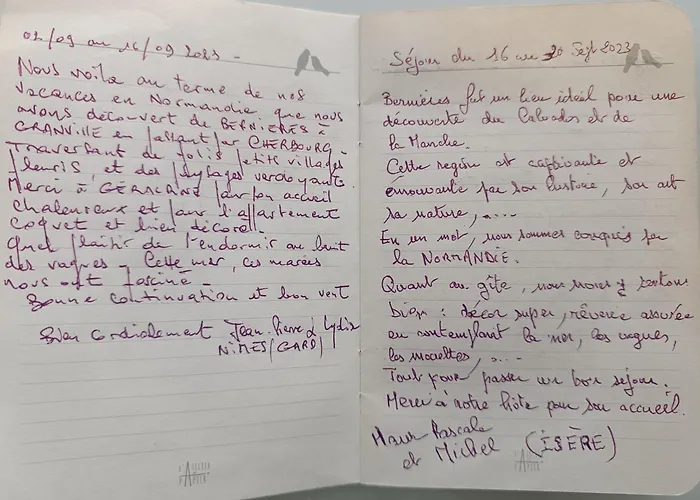 02/09 au 16/09 2023 -
Nous voila au terme de nos
vacances en Normandie que nous
avons découvert de BERNIERES à
GRANVILLE en passant par CHERBOURG -
Traversant de jolis petits villages
fleuris, et des paysages verdoyants.
Merci à GERMAINE pour son accueil
chaleureux et pour l'appartement
coquet et bien décoré.
Quel plaisir de s'endormir au bruit
des vagues - Cette mer, ces marées
nous ont fasciné -
Bonne continuation et bon vent
Bien cordialement Jean-Pierre & Lydia
NIMES (GARD)
Séjour du 16 au 20 Sept 2023
Bernières fut un lieu idéal pour une
découverte du Calvados et de
la Manche.
Cette région est captivante et
émouvante par son histoire, son art
sa nature, ...
En un mot, nous sommes conquis par
la NORMANDIE.
Quant au gîte, nous nous y sentons
bien : décor super, rêverie assurée
en contemplant la mer, les vagues,
les mouettes, ...
Tout pour passer un bon séjour.
Merci à notre hôte pour son accueil.
Pascale
et Michel (ISÈRE)